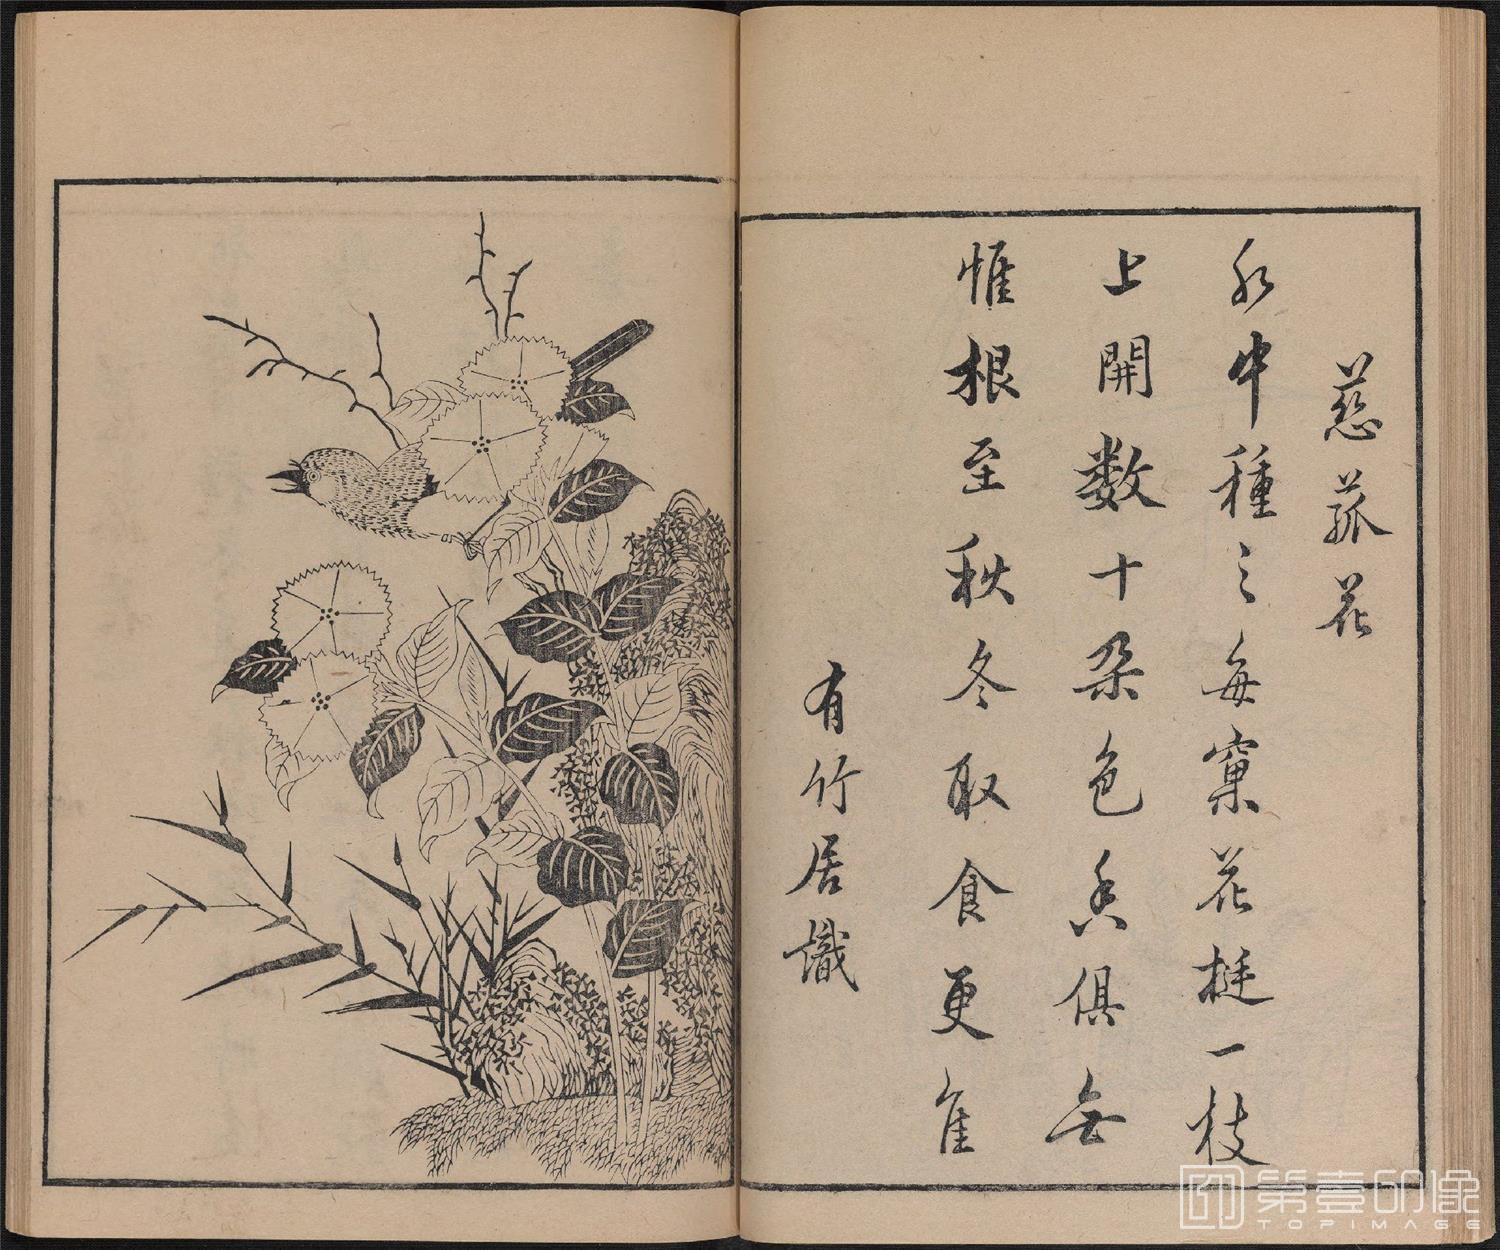 慈菰花
水中種之每窠花挺一枝
上開数十朶色香俱無
惟根至秋冬取食更佳
有竹居識
第壹印像
TOPIMAGE